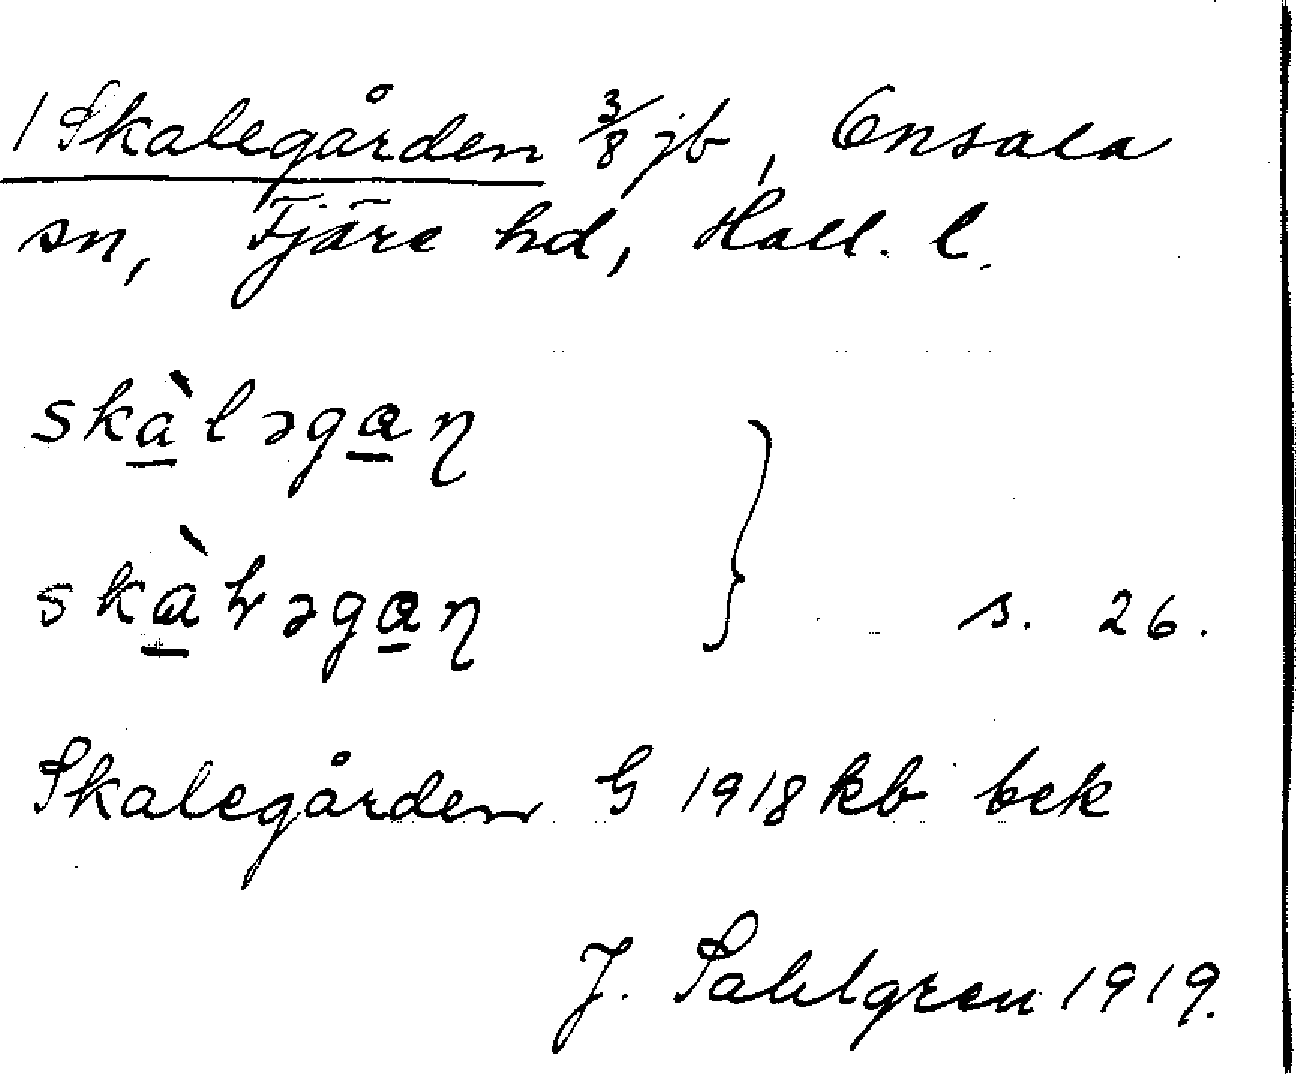 1 Skalegården 3/8 jb, Onsala
sn, Fjäre hd, Hall. l.
skà̱ləga̱ɳ
skà̱ɫəga̱ɳ } s. 26.
Skalegården G 1918 kb bek
J. Sahlgren 1919.